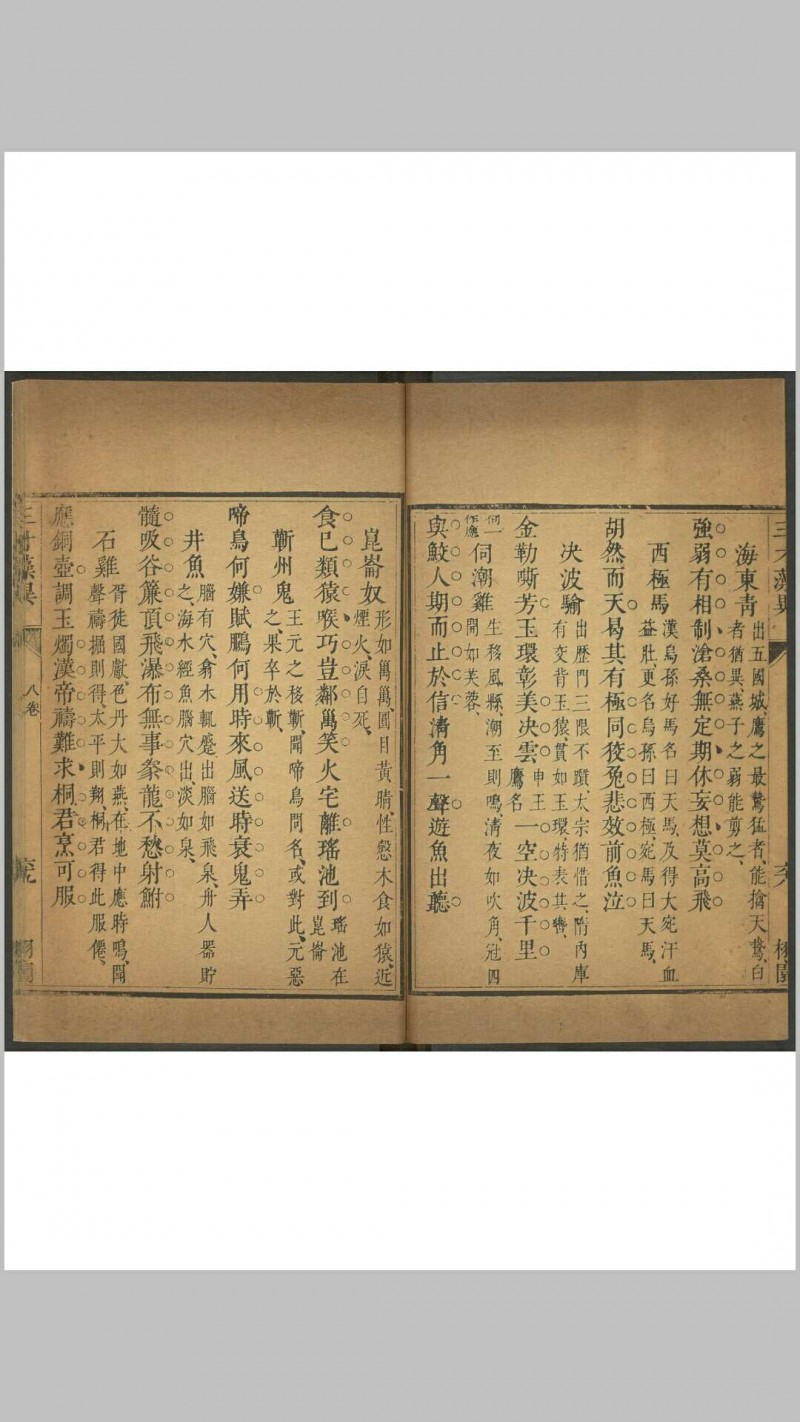 海東青 出五國城鷹之最鷙猛者、能擒天鵞、白
者猶異、燕子之弱能剪之、
強弱有相制滄桑無定期休妄想莫高飛
西極馬 漢烏孫好馬名曰天馬、及得大宛汗血
益壯、更名烏孫曰西極、宛馬曰天馬、
胡然而天曷其有極同狡兔悲效前魚泣
决波騟 出歷門三限不躓、太宗猶惜之、隋內庫
有交背玉猿、貫如玉環、特表其轡、
金勒嘶芳玉環彰美决雲 申王
鷹名 一空决波千里
伺一
作應 伺潮雞 生移風縣、潮至則鳴、清夜如吹角、冠四
開如芙蓉、
與鮫人期而止於信清角一聲遊魚出聽
三才藻異
崑崙奴 形如𥝋𥝋、圓目黃睛、性慤木食如猿、近
煙火、淚自死、
食巳類猿喉巧豈鄰𥝋笑火宅離瑤池到 瑤池在
崑崙
蘄州鬼 王元之移蘄、聞啼鳥問名、或對此、元惡
之、果卒於蘄、
啼鳥何嫌賦鵬何用時來風送時衰鬼弄
井魚 腦有穴、翕水輒蹙出腦如飛泉、舟人器貯
之、海水經魚腦穴出、淡如泉、
髓吸谷簾頂飛瀑布無事豢龍不愁射鮒
石雞 胥徒國獻、色丹大如燕、在地中應時鳴、聞
聲禱掘則得、太平則翔、桐君得此服僊、
應銅壺調玉燭漢帝禱難求桐君烹可服
三才藻異
八卷
栩園